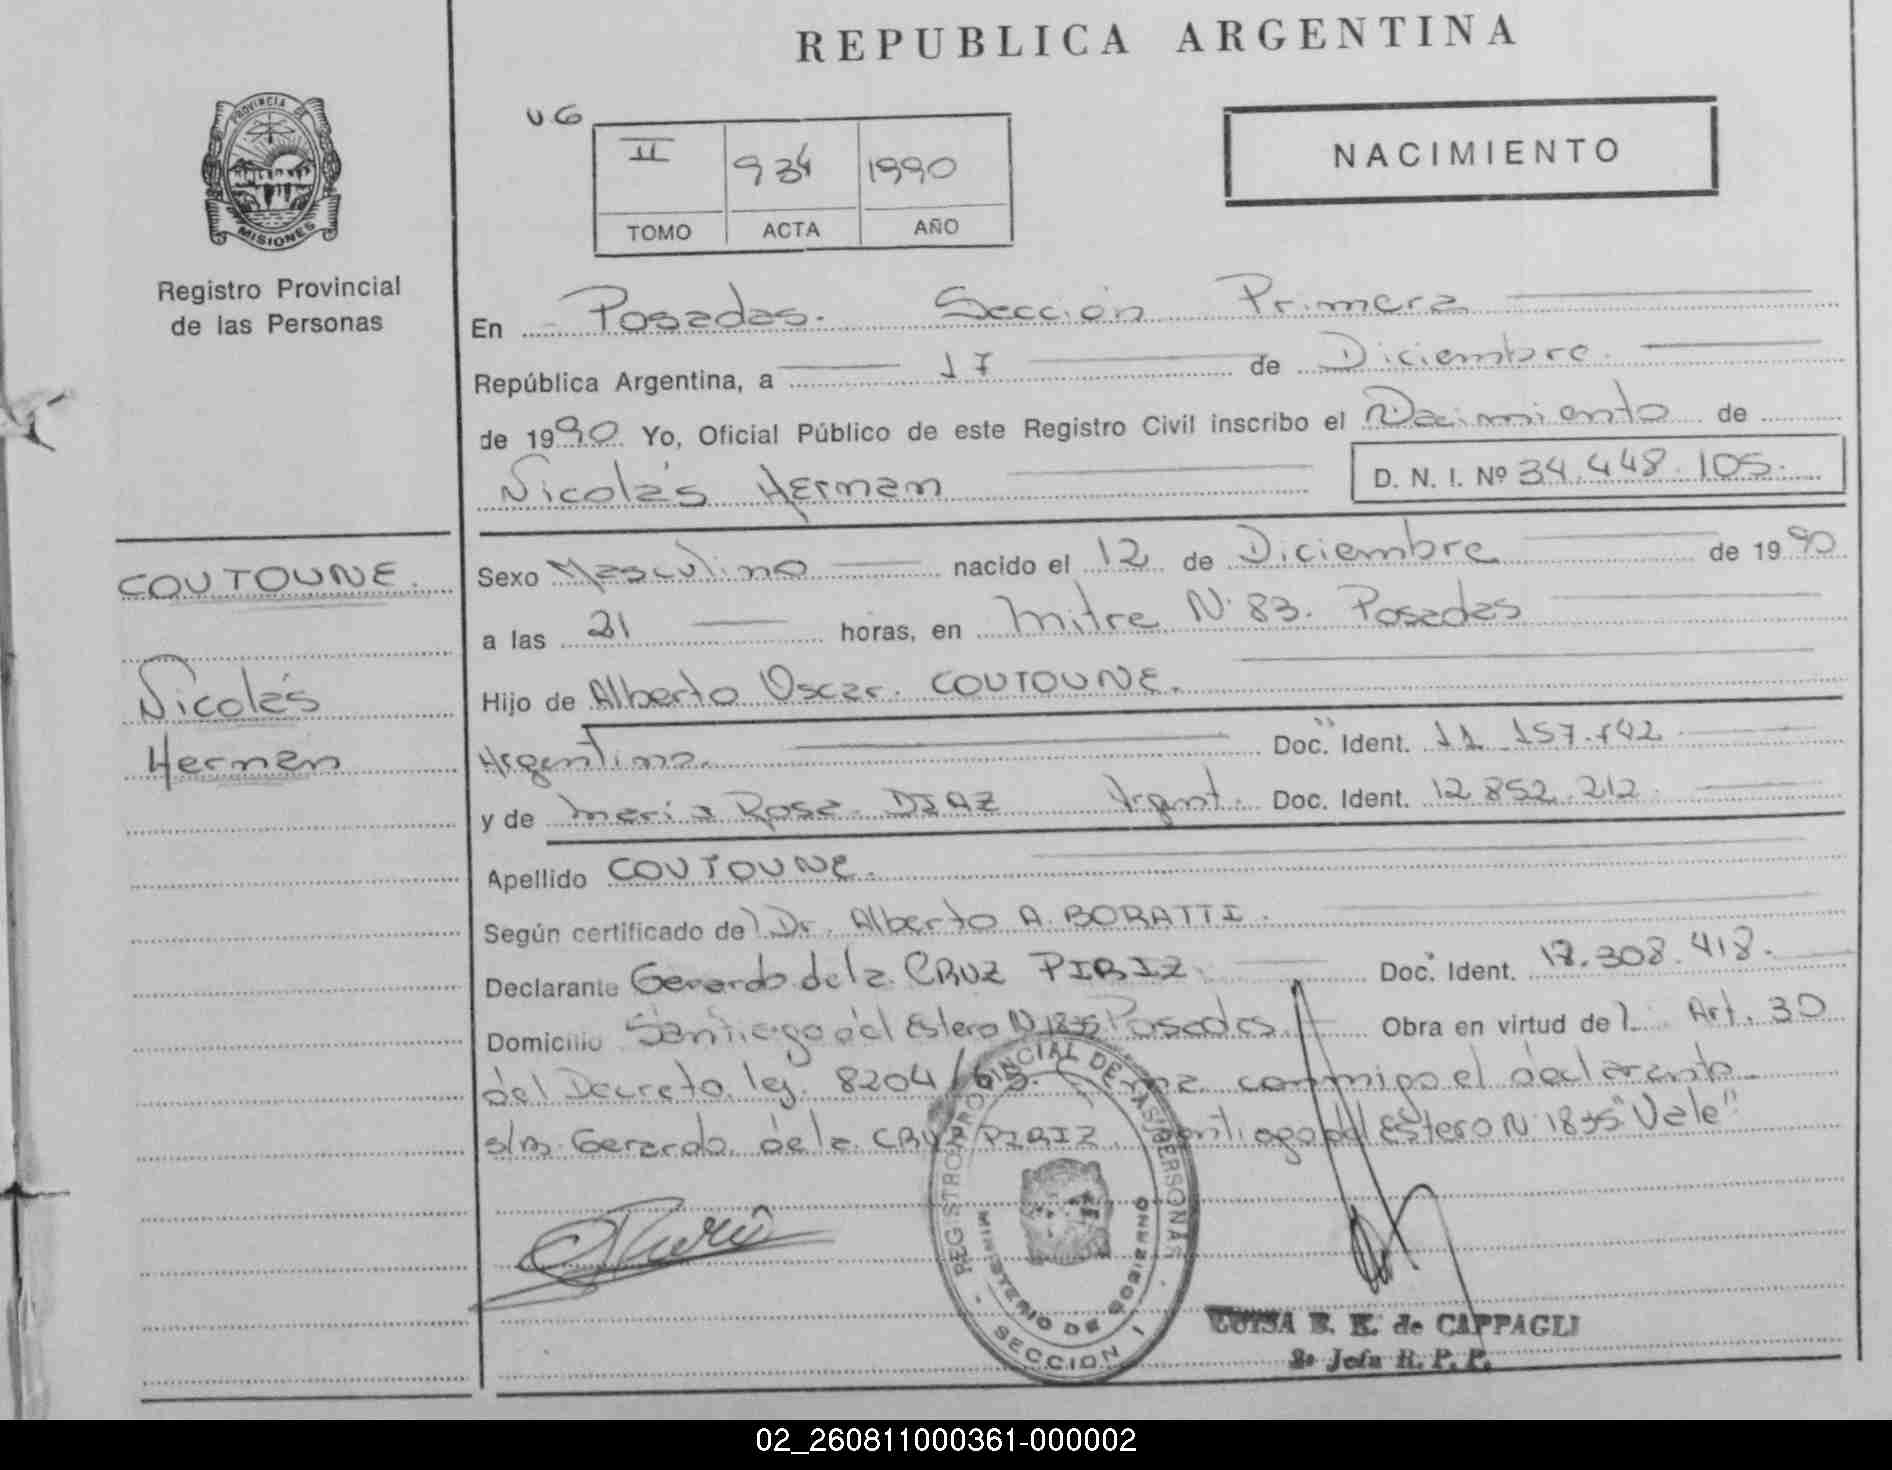 REPUBLICA ARGENTINA
PROVINCIA DE
MISIONES
Registro Provincial
de las Personas
II 934 1990
TOMO ACTA AÑO
NACIMIENTO
En Posadas. Sección Primera
República Argentina, a 17 de Diciembre.
de 1990 Yo, Oficial Público de este Registro Civil inscribo el Nacimiento de
Nicolás Hernan D. N. I. Nº 34.448.105.
COUTOUNE.
Nicolás
Hernan
Sexo Masculino nacido el 12 de Diciembre de 1990
a las 21 horas, en Mitre N. 83. Posadas
Hijo de Alberto Oscar. COUTOUNE.
Argentina. Doc. Ident. 11.157.
y de Maria Rosa. DIAZ Argent. Doc. Ident. 12.852.212.
Apellido COUTOUNE.
Según certificado del Dr. Alberto A. BORATTI.
Declarante Gerardo de la CRUZ PIRIZ. Doc. Ident. 17.308.418.
Domicilio Santiago del Estero N 1835 Posadas Obra en virtud del Art. 30
del Decreto. ley. 8204/63. Firma conmigo el declarante.
s/r. Gerardo. de la CRUZ PIRIZ. Santiago del Estero N. 1835 "Vale"
REGISTRO PROVINCIAL DE LAS PERSONAS
MINISTERIO DE GOBIERNO
SECCION 1
LUISA E. K. de CAPPAGLI
2ª Jefa R. P. P.
02_260811000361-000002